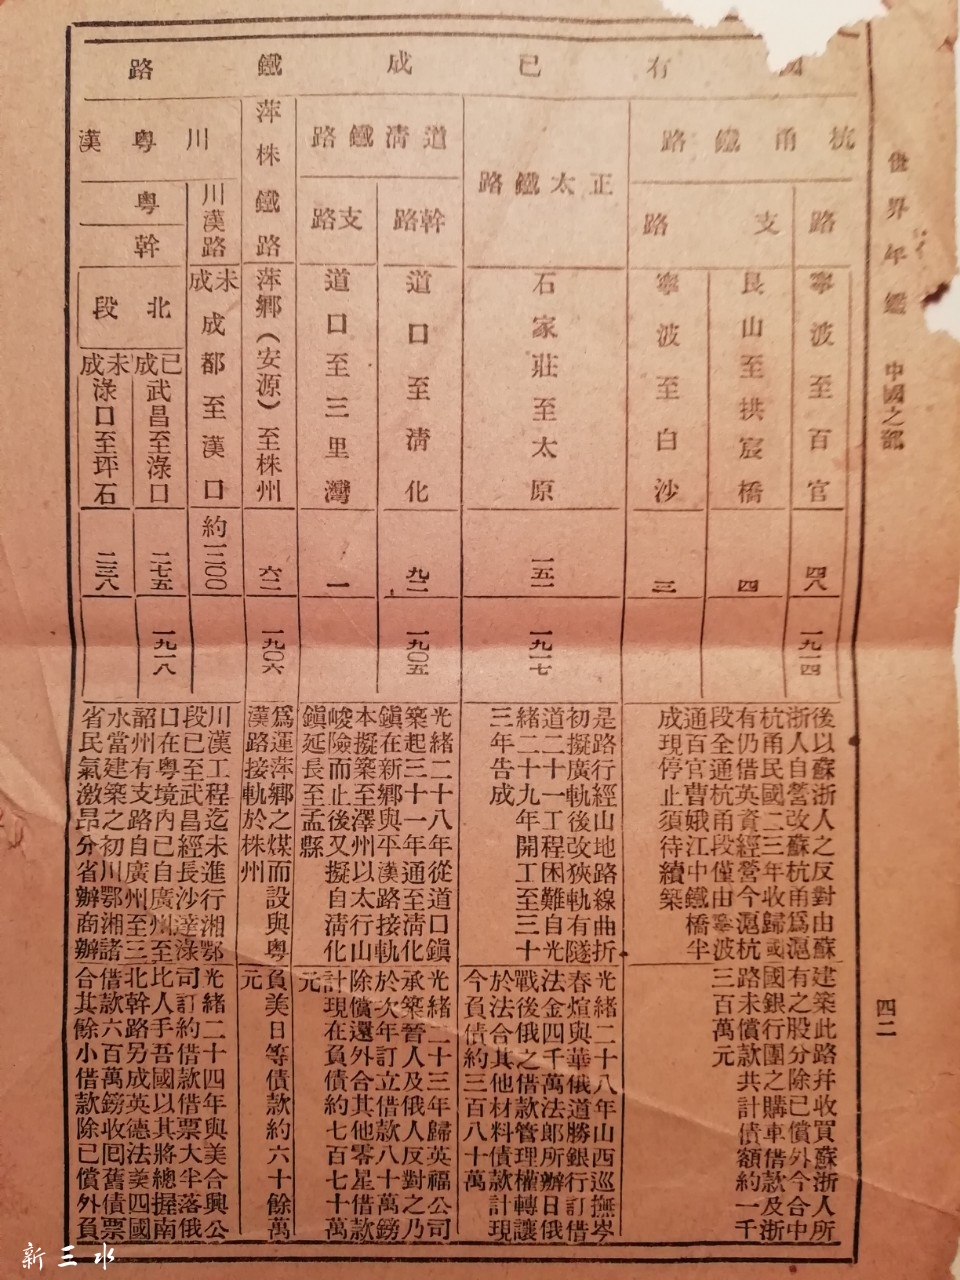 世界年鑑 中國之部
四二
有已成鐵路
杭甬鐵路
路
寧波至百官
四八
一九一四
支路
艮山至拱宸橋
四
寧波至白沙
三
後以蘇浙人之反對由蘇
浙人自營改蘇杭甬爲滬
杭甬民國二三年收歸國
有仍借英資經營今滬杭
段全通杭甬段僅由寧波
通百官曹娥江中鐵橋半
成現停止須待續築
建築此路幷收買蘇浙人所
有之股分除已償外今合中
國銀行團之購車借款及浙
路未償款共計債額約一千
三百萬元
正太鐵路
石家莊至太原
一五一
一九一七
是路行經山地路線曲折
初擬廣軌後改狹軌有隧
道二十一工程困難自光
緒二十九年開工至三十
三年告成
光緒二十八年山西巡撫岑
春煊與華俄道勝銀行訂借
法金四千萬法郎所辦日俄
戰後俄之借款管理權轉讓
於法合其他材料債款計現
今負債約三百八十萬
道淸鐵路
幹路
道口至淸化
九二
一九〇五
支路
道口至三里灣
一
光緒二十八年從道口鎮
築起三十一年通至淸化
鎮在新鄉與平漢路接軌
本擬築至澤州以太行山
峻險而止後又擬自淸化
鎮延長至孟縣
光緒二十三年歸英福公司
承築晉人及俄人反對之乃
於次年訂立借款八十萬鎊
除償還外合其他零星借款
計現在負債約七百七十萬
元
萍株鐵路
萍鄉(安源)至株州
六二
一九〇六
爲運萍鄉之煤而設與粵
漢路接軌於株州
負美日等債款約六十餘萬
元
川粵漢
川漢路
未成
成都至漢口
約一二〇〇
粵
幹
北段
已成
武昌至淥口
二七五
一九一八
未成
淥口至坪石
二三八
川漢工程迄未進行湘鄂
段已至武昌經長沙達淥
口在粵境內已自廣州至
韶州有支路自廣州至三
水當建築之初川鄂湘諸
省民氣激昂分省辦商辦
光緒二十四年與美合興公
司訂約借款借票大半落俄
比人手吾國以其將總握南
北幹路另成英德法美四國
借款六百萬鎊收囘舊債票
合其餘小借款除已償外負
新三水